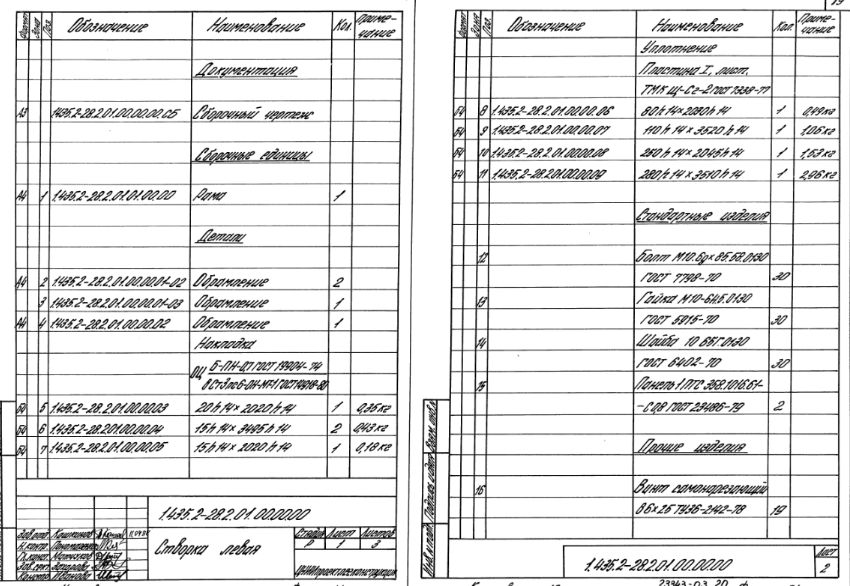 Формат Зона Поз. Обозначение Наименование Кол. Приме-
чание
Документация
А3 1.435.2-28.2.01.00.00.00.СБ Сборочный чертеж
Сборочные единицы
А4 1 1.435.2-28.2.01.01.00.00 Рама 1
Детали
А4 2 1.435.2-28.2.01.00.00.01-02 Обрамление 2
3 1.435.2-28.2.01.00.00.01-03 Обрамление 1
А4 4 1.435.2-28.2.01.00.00.02 Обрамление 1
Накладка
ОЦ Б-ПН-0,7 ГОСТ 19904-74
БЧ 5 1.435.2-28.2.01.00.00.03 20h14×2020h14 1 0,35кг
БЧ 6 1.435.2-28.2.01.00.00.04 15h14×3495h14 2 0,43кг
БЧ 7 1.435.2-28.2.01.00.00.05 15h14×2020h14 1 0,18кг
1.435.2-28.2.01.00.00.00
Створка левая
Стадия Лист Листов
Р 1 3
19
Формат Зона Поз. Обозначение Наименование Кол. Приме-
чание
Уплотнение
Пластина I, лист,
ТМКЩ-С2-2 ГОСТ 7338-77
БЧ 8 1.435.2-28.2.01.00.00.06 80h14×2030h14 1 0,49кг
БЧ 9 1.435.2-28.2.01.00.00.07 110h14×3520h14 1 1,06кг
БЧ 10 1.435.2-28.2.01.00.00.08 250h14×2045h14 1 1,53кг
БЧ 11 1.435.2-28.2.01.00.00.09 280h14×3510h14 1 2,96кг
Стандартные изделия
12 Болт М10.6g×85.58.0130
ГОСТ 7798-70 30
13 Гайка М10-6Н.5.0130
ГОСТ 5915-70 30
14 Шайба 10 65Г 0130
ГОСТ 6402-70 30
15 Панель 1ПТС
-С0,8 ГОСТ 23486-79 2
Прочие изделия
16 Винт самонарезающий
В6×25 ТУ36-2142-78 19
1.435.2-28.2.01.00.00.00
Лист
2
23343-03 20